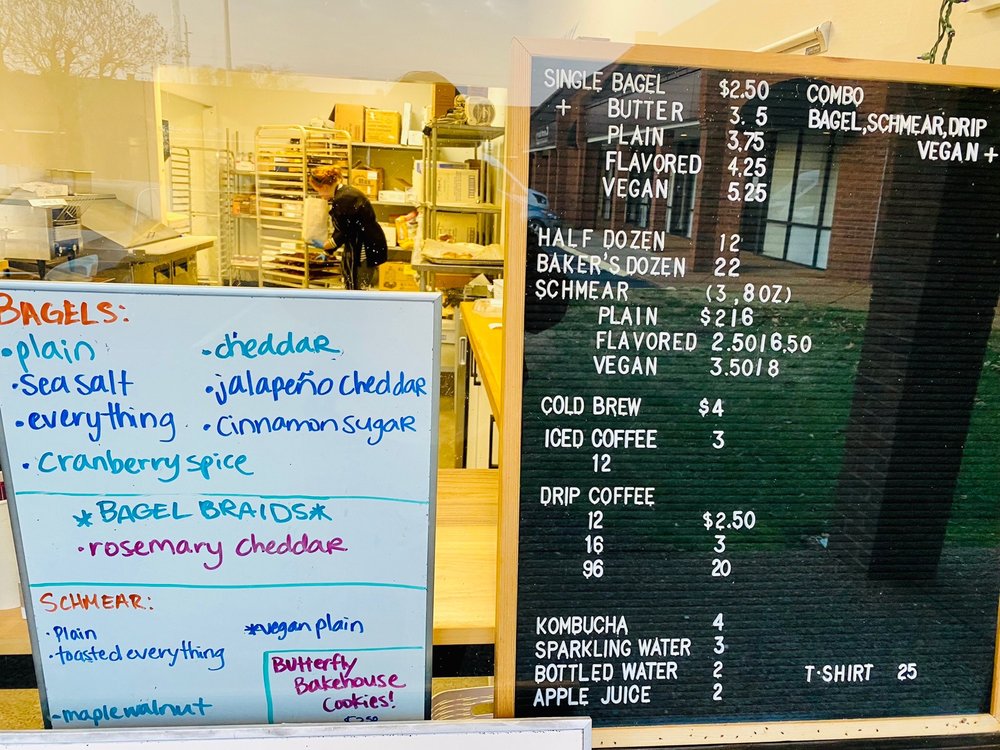 BAGELS:
•plain
•sea salt
•everything
•cranberry spice
•cheddar
•jalapeño cheddar
•cinnamon sugar
*BAGEL BRAIDS*
•rosemary cheddar
SCHMEAR:
•Plain
•toasted everything
•maple walnut
*vegan plain
Butterfly
Bakehouse
Cookies!
SINGLE BAGEL $2.50
+ BUTTER 3. 5
PLAIN 3.75
FLAVORED 4.25
VEGAN 5.25
COMBO
BAGEL,SCHMEAR,DRIP
VEGAN +
HALF DOZEN 12
BAKER'S DOZEN 22
SCHMEAR (3,8OZ)
PLAIN $216
FLAVORED 2.5016.50
VEGAN 3.5018
COLD BREW $4
ICED COFFEE 3
12
DRIP COFFEE
12 $2.50
16 3
96 20
KOMBUCHA 4
SPARKLING WATER 3
BOTTLED WATER 2
APPLE JUICE 2
T-SHIRT 25